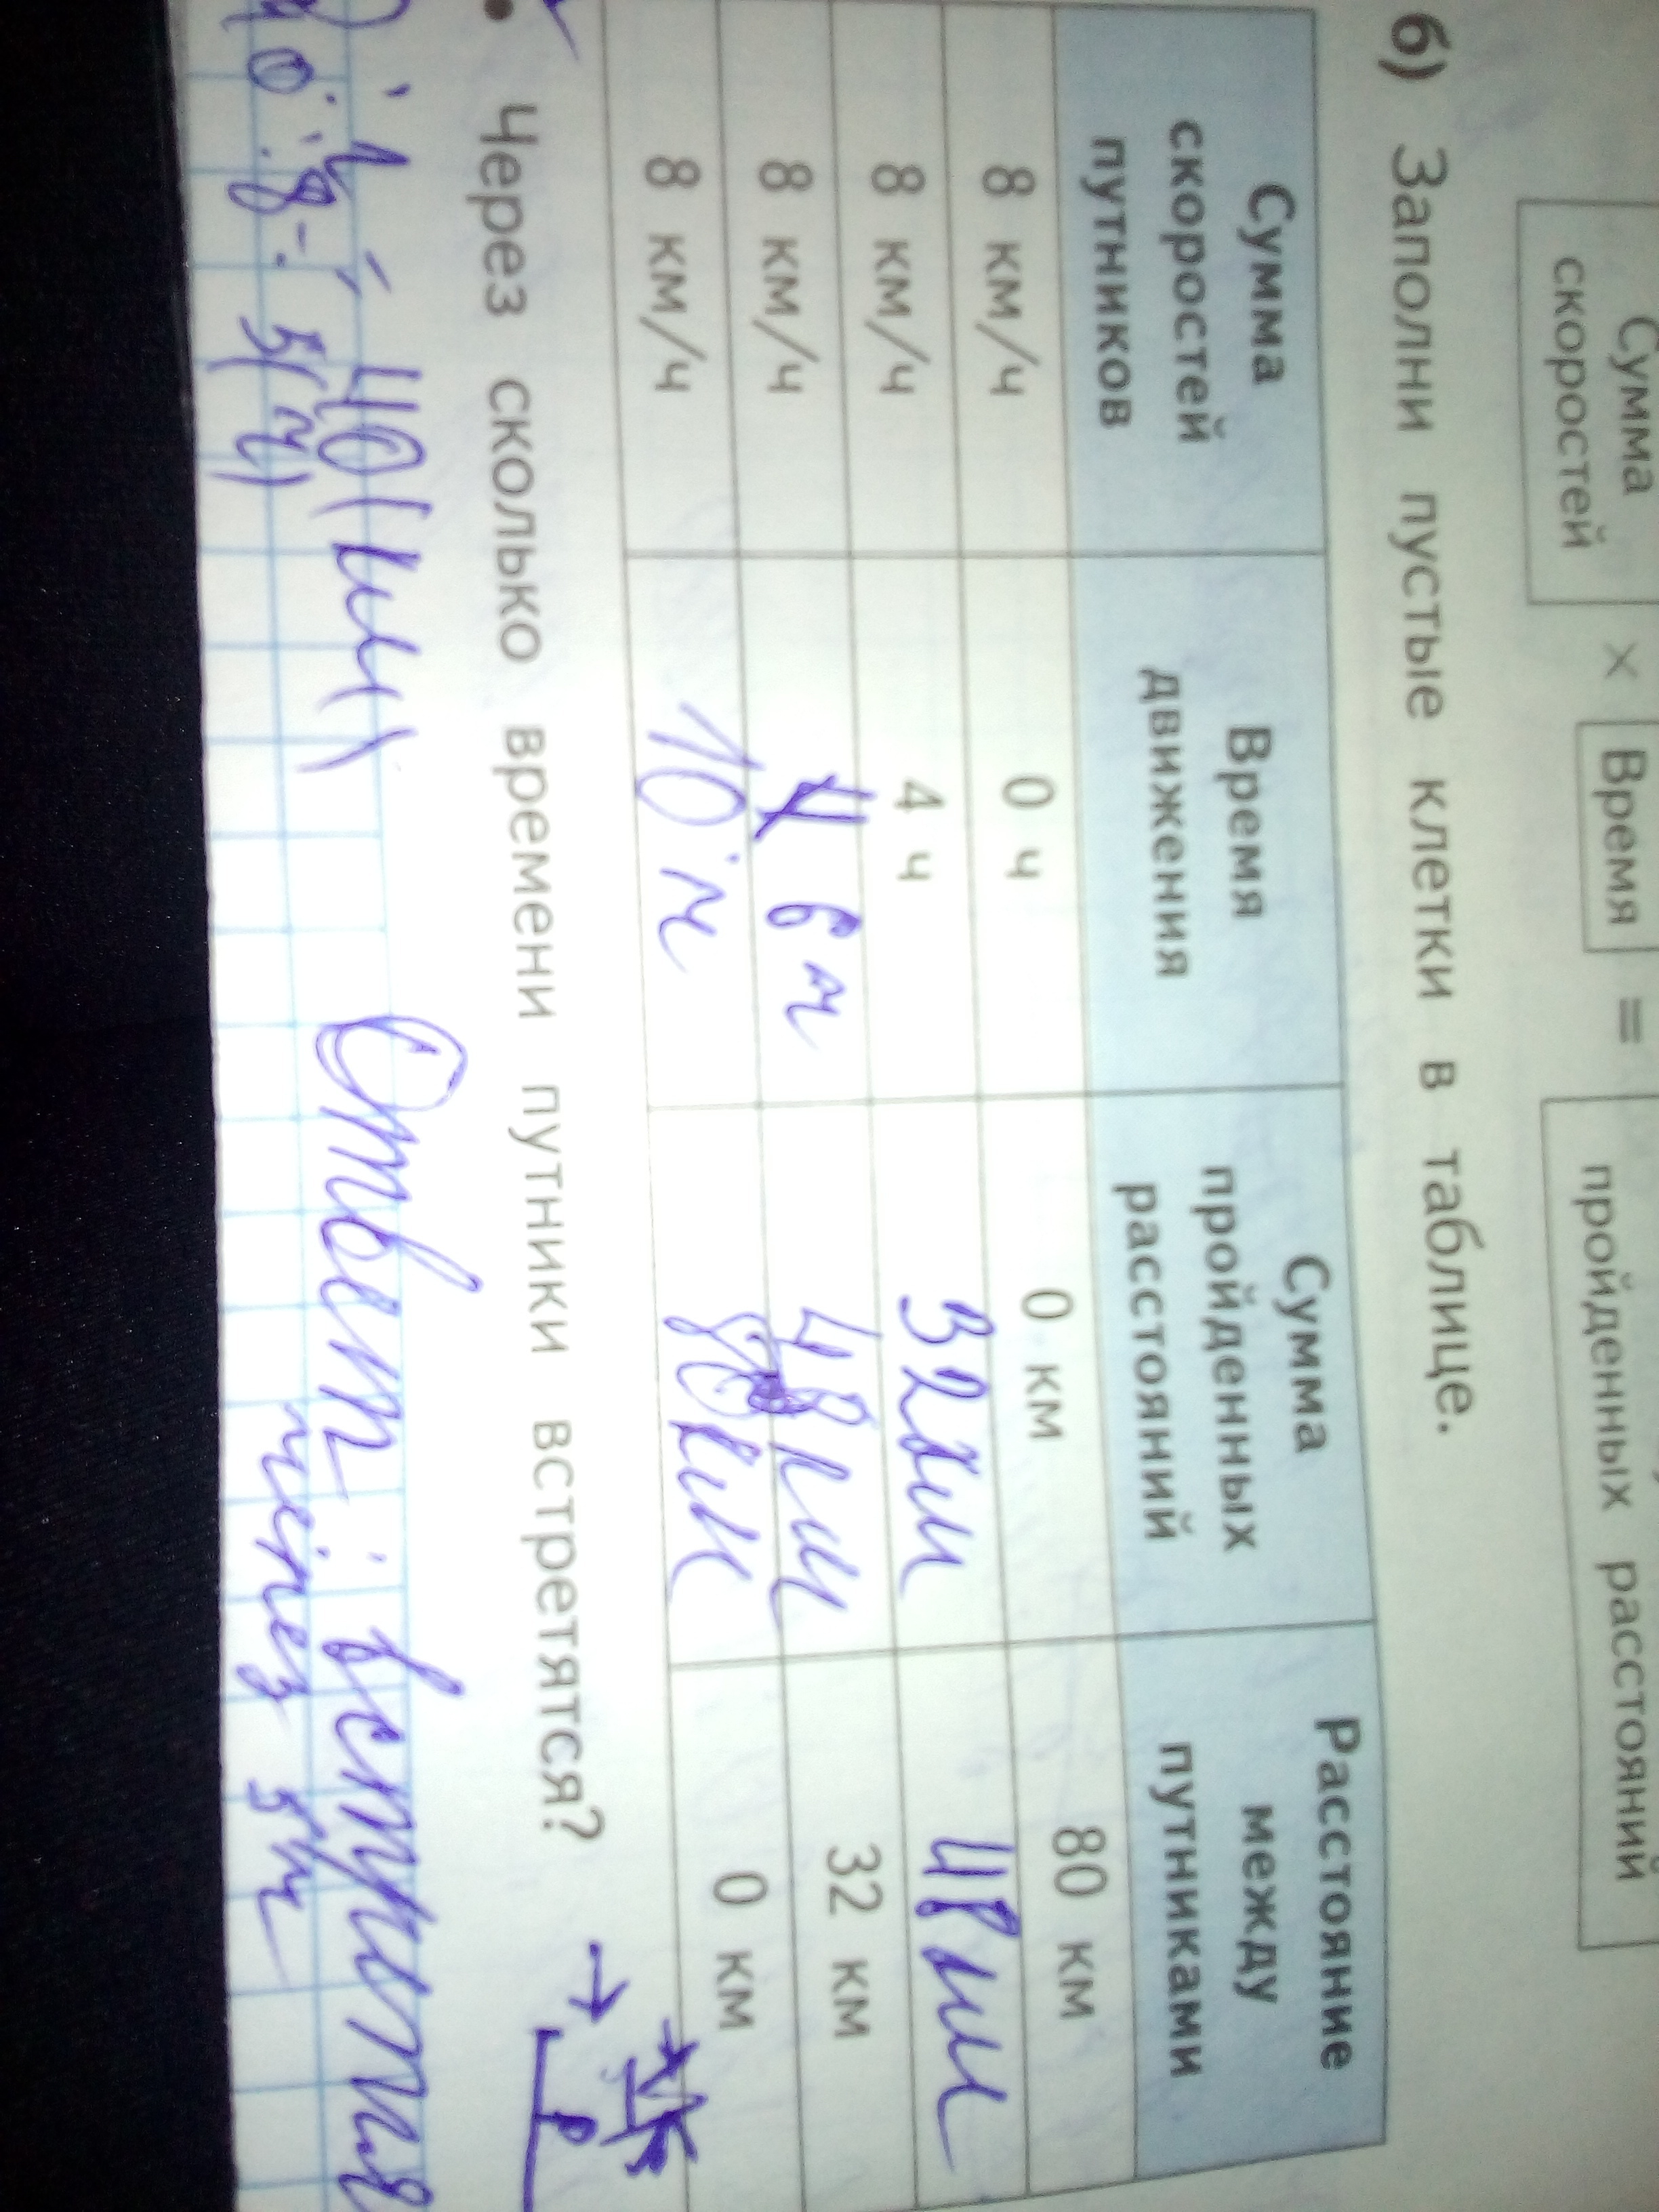 Сумма
скоростей
×
Время
=
пройденных расстояний
б) Заполни пустые клетки в таблице.
Сумма скоростей путников
Время движения
Сумма пройденных расстояний
Расстояние между путниками
8 км/ч 0 ч 0 км 80 км
8 км/ч 4 ч 32км 48км
8 км/ч 6 ч 48км 32 км
8 км/ч 10 ч 80км 0 км
• Через сколько времени путники встретятся?
40(км) Ответ: встретятся
8= 5(ч) через 5ч